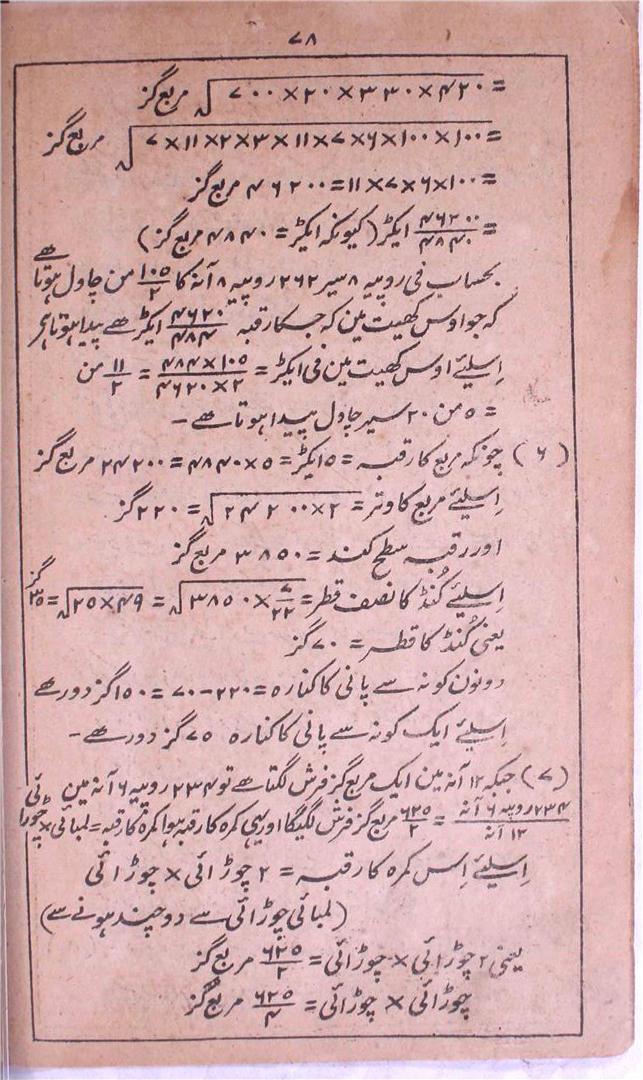 ۷۸
= √(۴۲۰×۳۳۰×۲۰×۷۰۰) مربع گز
= √(۱۰۰×۱۰۰×۶×۷×۱۱×۳×۲×۱۱×۷) مربع گز
= ۱۰۰×۶×۷×۱۱ = ۴۶۲۰۰ مربع گز
= ۴۶۲۰۰/۴۸۴۰ ایکڑ (کیونکہ ایکڑ = ۴۸۴۰ مربع گز)
بحساب فی روپیہ ۸ سیر ۲۶۲ روپیہ ۸ آنہ کا ۱۰۵/۲ من چاول ہوتا ھے
کہ جو اوس کھیت مین کہ جسکا رقبہ ۴۶۲۰/۴۸۴ ایکڑ ھے پیدا ہوتا ہی
اِسلیئے اوس کھیت مین فی ایکڑ = ۴۸۴×۱۰۵/۴۶۲۰×۲ = ۱۱/۲ من
= ۵ من ۲۰ سیر چاول پیدا ہوتا ھے -
(۶) چونکہ مربع کا رقبہ = ۵ ایکڑ = ۵×۴۸۴۰ = ۲۴۲۰۰ مربع گز
اِسلیئے مربع کا وتر = √(۲۴۲۰۰×۲) = ۲۲۰ گز
اور رقبہ سطح کنڈ = ۳۸۵۰ مربع گز
اِسلیئے کُنڈ کا نصف قطر = √(۳۸۵۰×۷/۲۲) = √(۲۵×۴۹) = ۳۵ گز
یعنی کُنڈ کا قطر = ۷۰ گز
دونون کونہ سے پانی کا کنارہ = ۲۲۰-۷۰ = ۱۵۰ گز دور ھے
اِسلیئے ایک کونہ سے پانی کا کنارہ ۷۵ گز دور ھے -
(۷) جبکہ ۱۲ آنہ مین ایک مربع گز فرش لگتا ھے تو ۲۳۴ روپیہ ۶ آنہ مین
۲۳۴ روپیہ ۶ آنہ/۱۲ آنہ = ۶۲۵/۲ مربع گز فرش لگیگا اور یہی کمرہ کا رقبہ ہوا کمرہ کا رقبہ = لمبائی × چوڑائی
اِسلیئے اِس کمرہ کا رقبہ = ۲ چوڑائی × چوڑائی
(لمبائی چوڑائی سے دو چند ہونے سے)
یعنی ۲ چوڑائی × چوڑائی = ۶۲۵/۲ مربع گز
چوڑائی × چوڑائی = ۶۲۵/۴ مربع گز